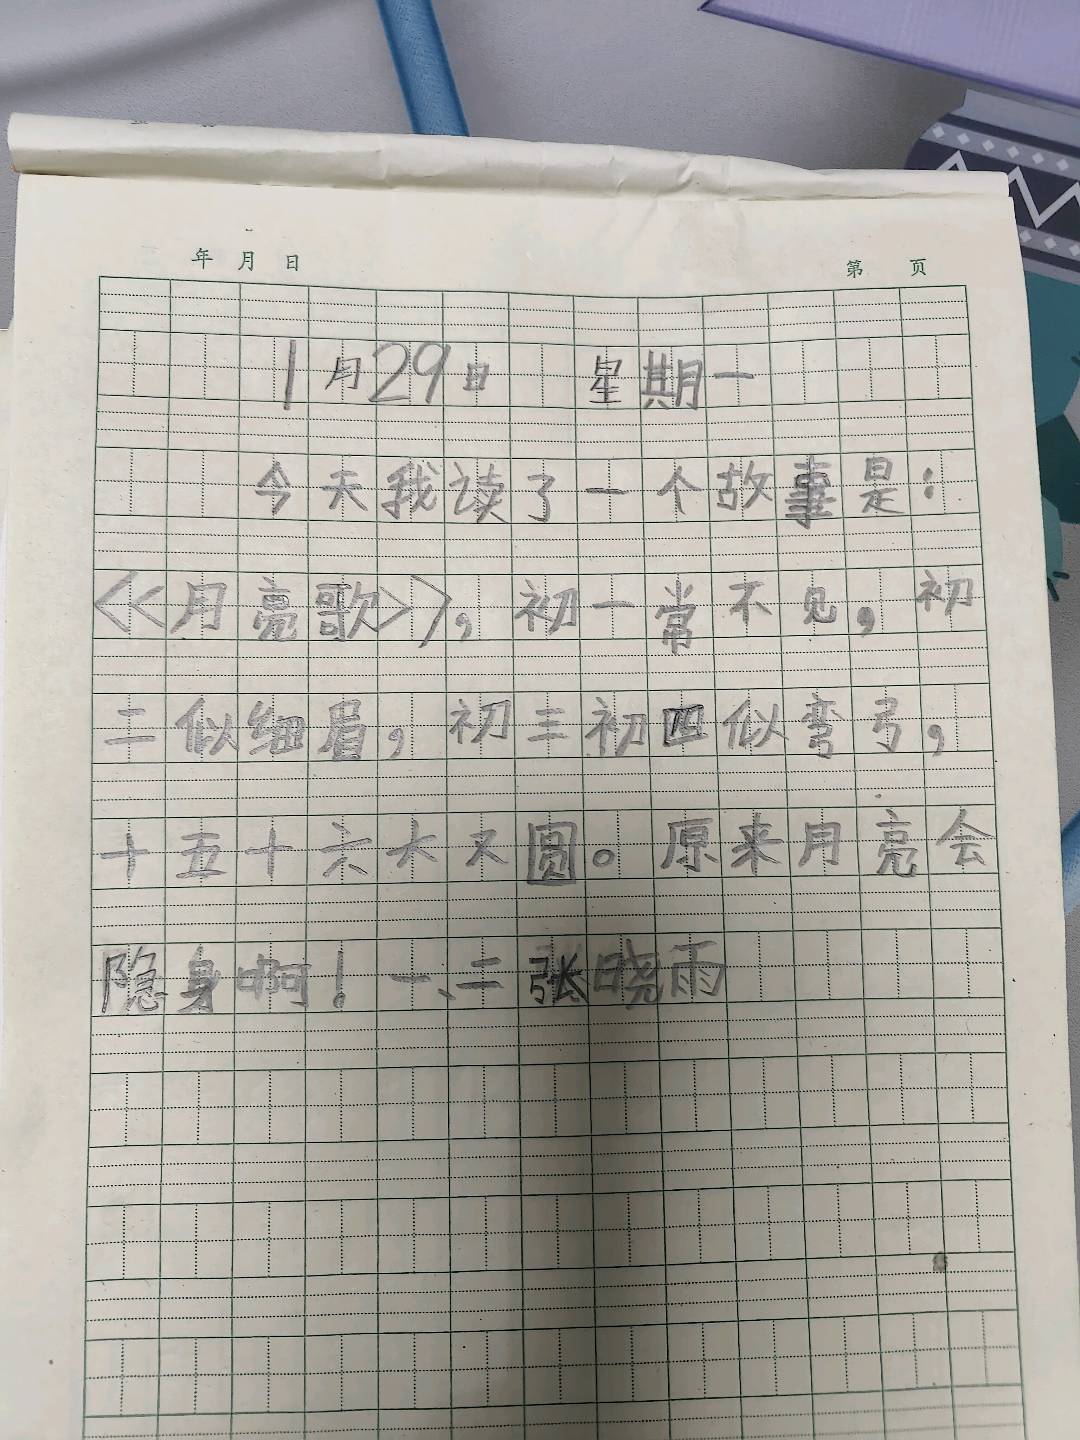 年 月 日 第 页
1月29日 星期一
今天我读了一个故事是:
《月亮歌》,初一常不见,初
二似细眉,初三初四似弯弓,
十五十六大又圆。原来月亮会
隐身啊!一、二张晓雨